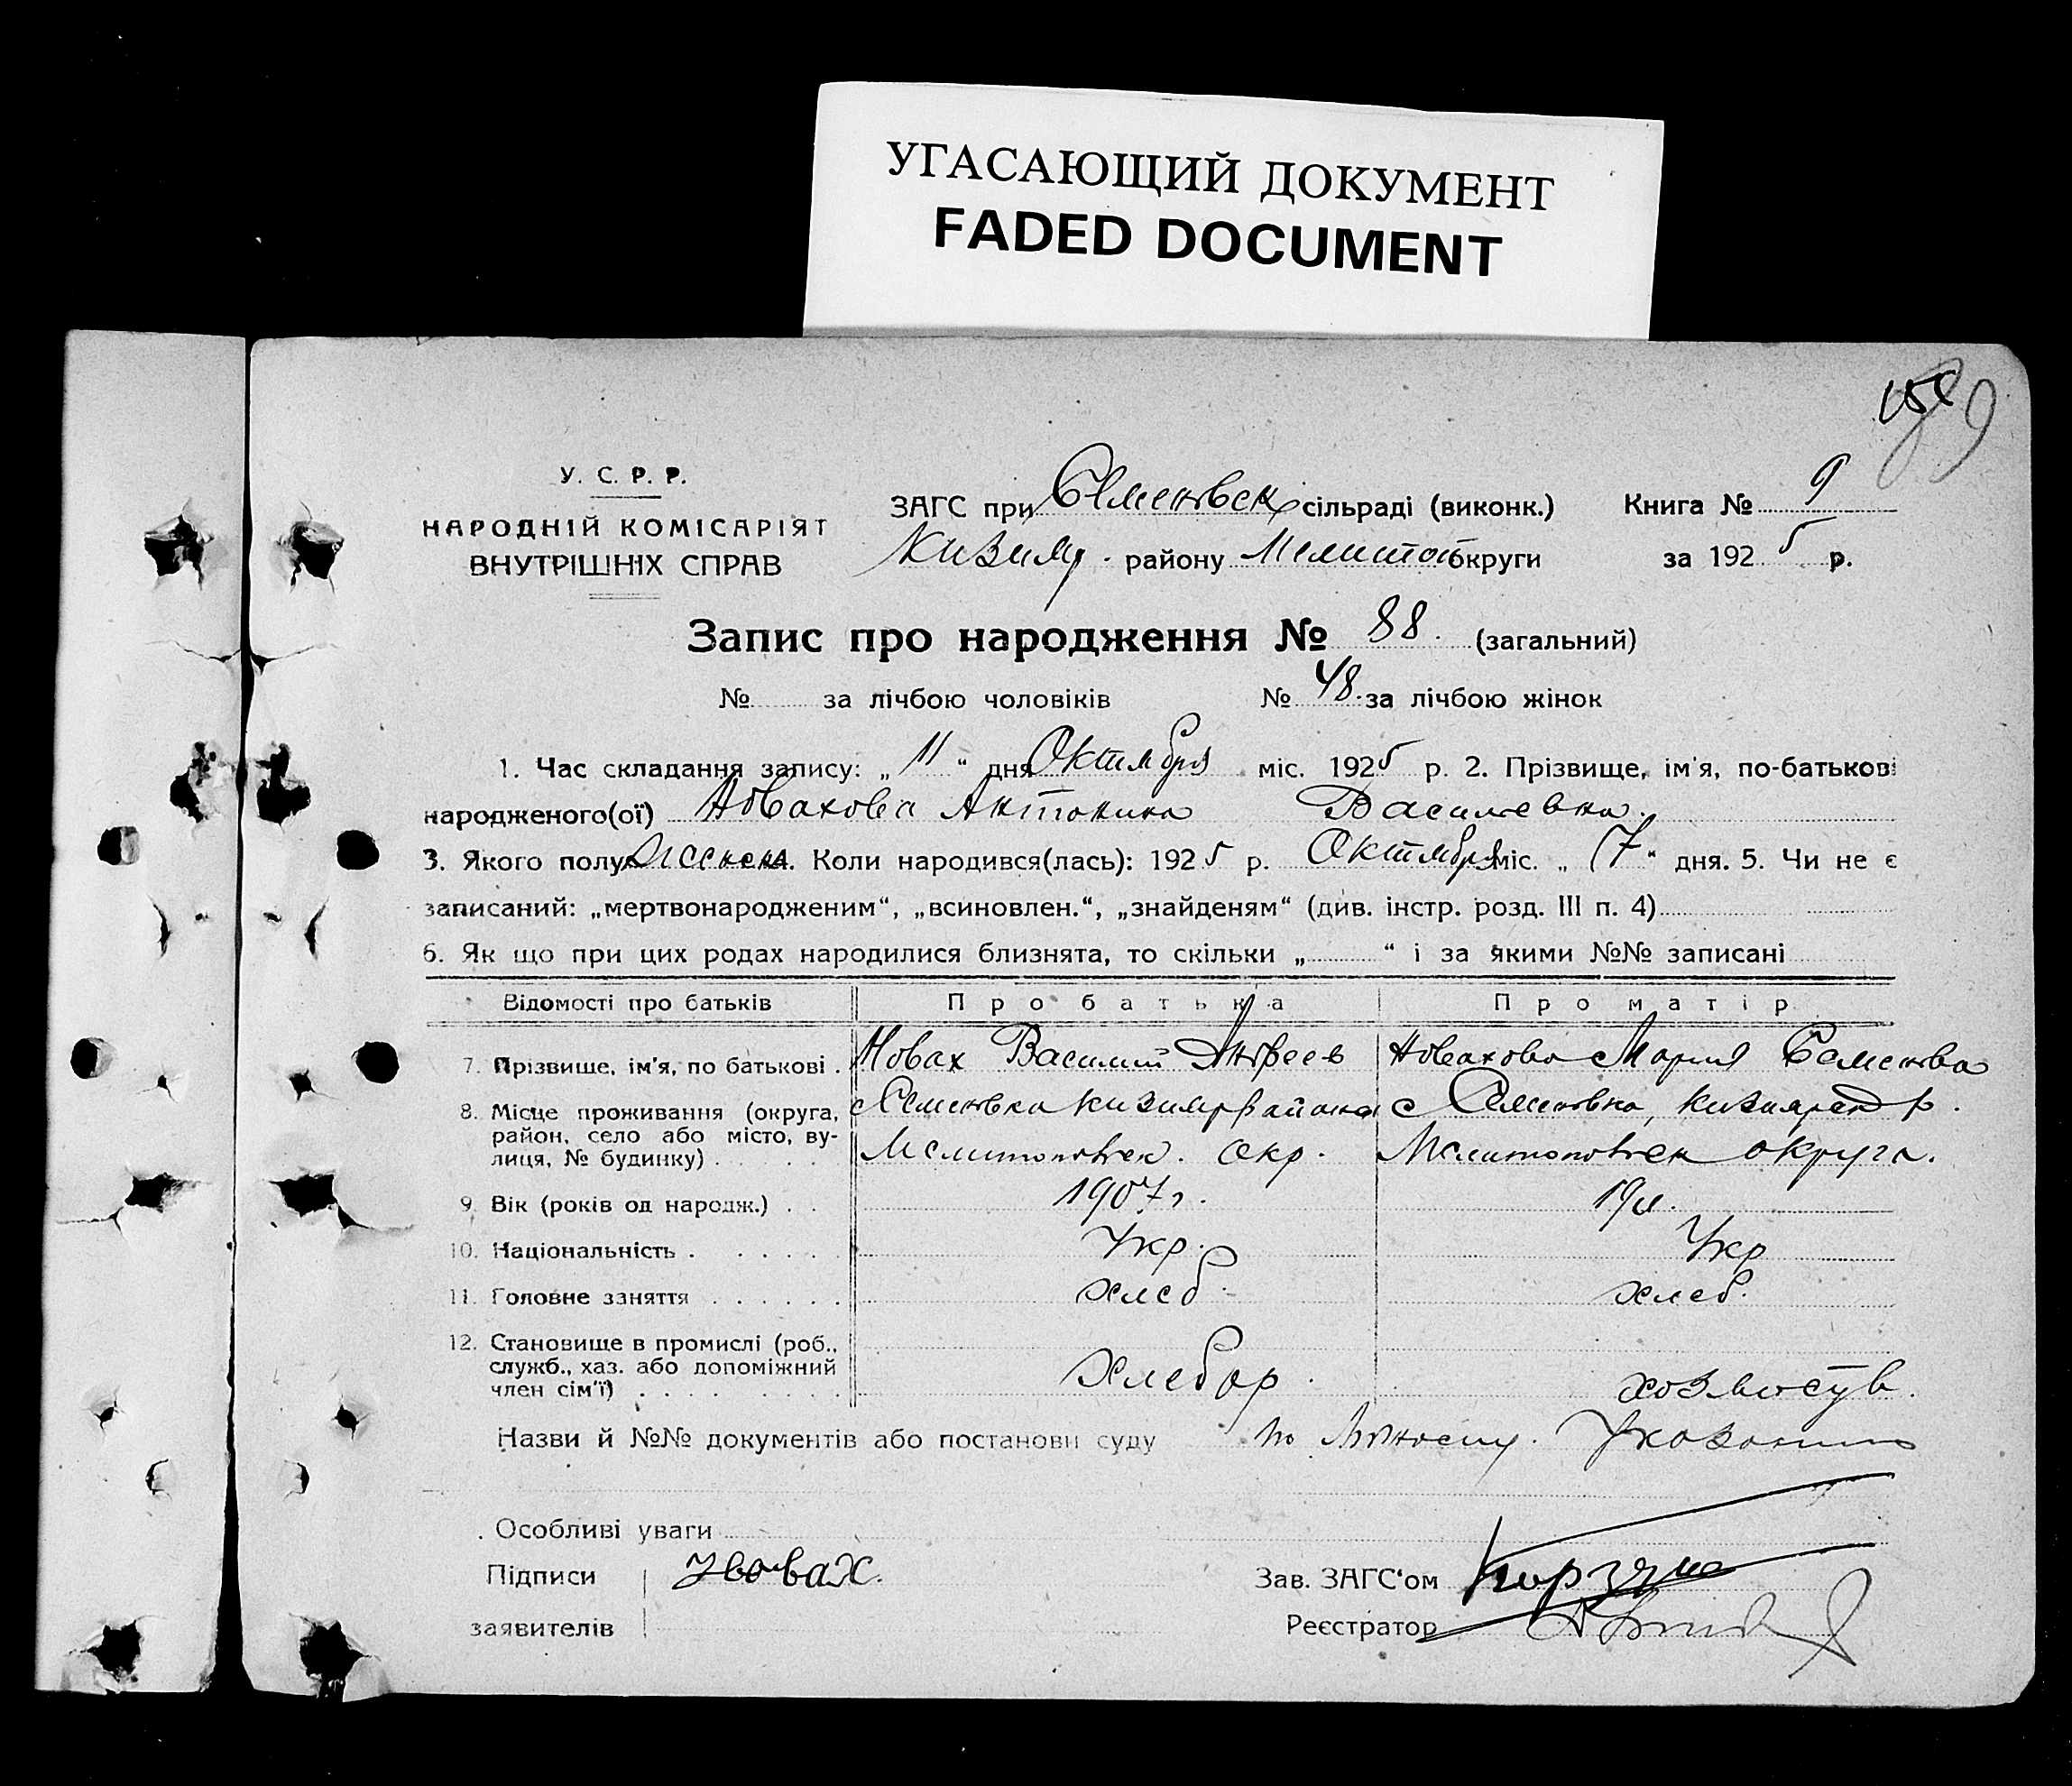 УГАСАЮЩИЙ ДОКУМЕНТ
FADED DOCUMENT
У. С. Р. Р.
НАРОДНІЙ КОМІСАРІЯТ
ВНУТРІШНІХ СПРАВ
ЗАГС при Семеновск сільраді (виконк.) Книга № 9
району Мелитоп округи за 1925 р.
Запис про народження № 88. (загальний)
№ за лічбою чоловіків № 48. за лічбою жінок
1. Час складання запису: „11“ дня Октября міс. 1925 р. 2. Прізвище, ім'я, по-батькові
народженого(ої) Новахова Антонина Василевна.
3. Якого полу женск 4. Коли народився(лась): 1925 р. Октября міс. „7“ дня. 5. Чи не є
записаний: „мертвонародженим“, „всиновлен.“, „знайденям“ (див. інстр. розд. III п. 4)
6. Як що при цих родах народилися близнята, то скільки „ “ і за якими №№ записані
Відомості про батьків Про батька Про матір
7. Прізвише, ім'я, по батькові . Новах Василий Андреев Новахова Мария Семенова
8. Місце проживання (округа, район, село або місто, вулиця, № будинку) с Семеновка района с Семеновка, р.
Мелитоповск. окр. Мелитоповск округа.
9. Вік (років од народж.) . . 1907 г.
10. Національність . . . . . . Укр. Укр
11. Головне зэняття . . . . . . хлеб. хлеб.
12. Становище в промислі (роб., служб., хаз. або допоміжний член сім'ї) . . . . . Хлебор.
Назви й №№ документів або постанови суду по
Особливі уваги
Підписи Новах. Зав. ЗАГС'ом
заявителів Реєстратор